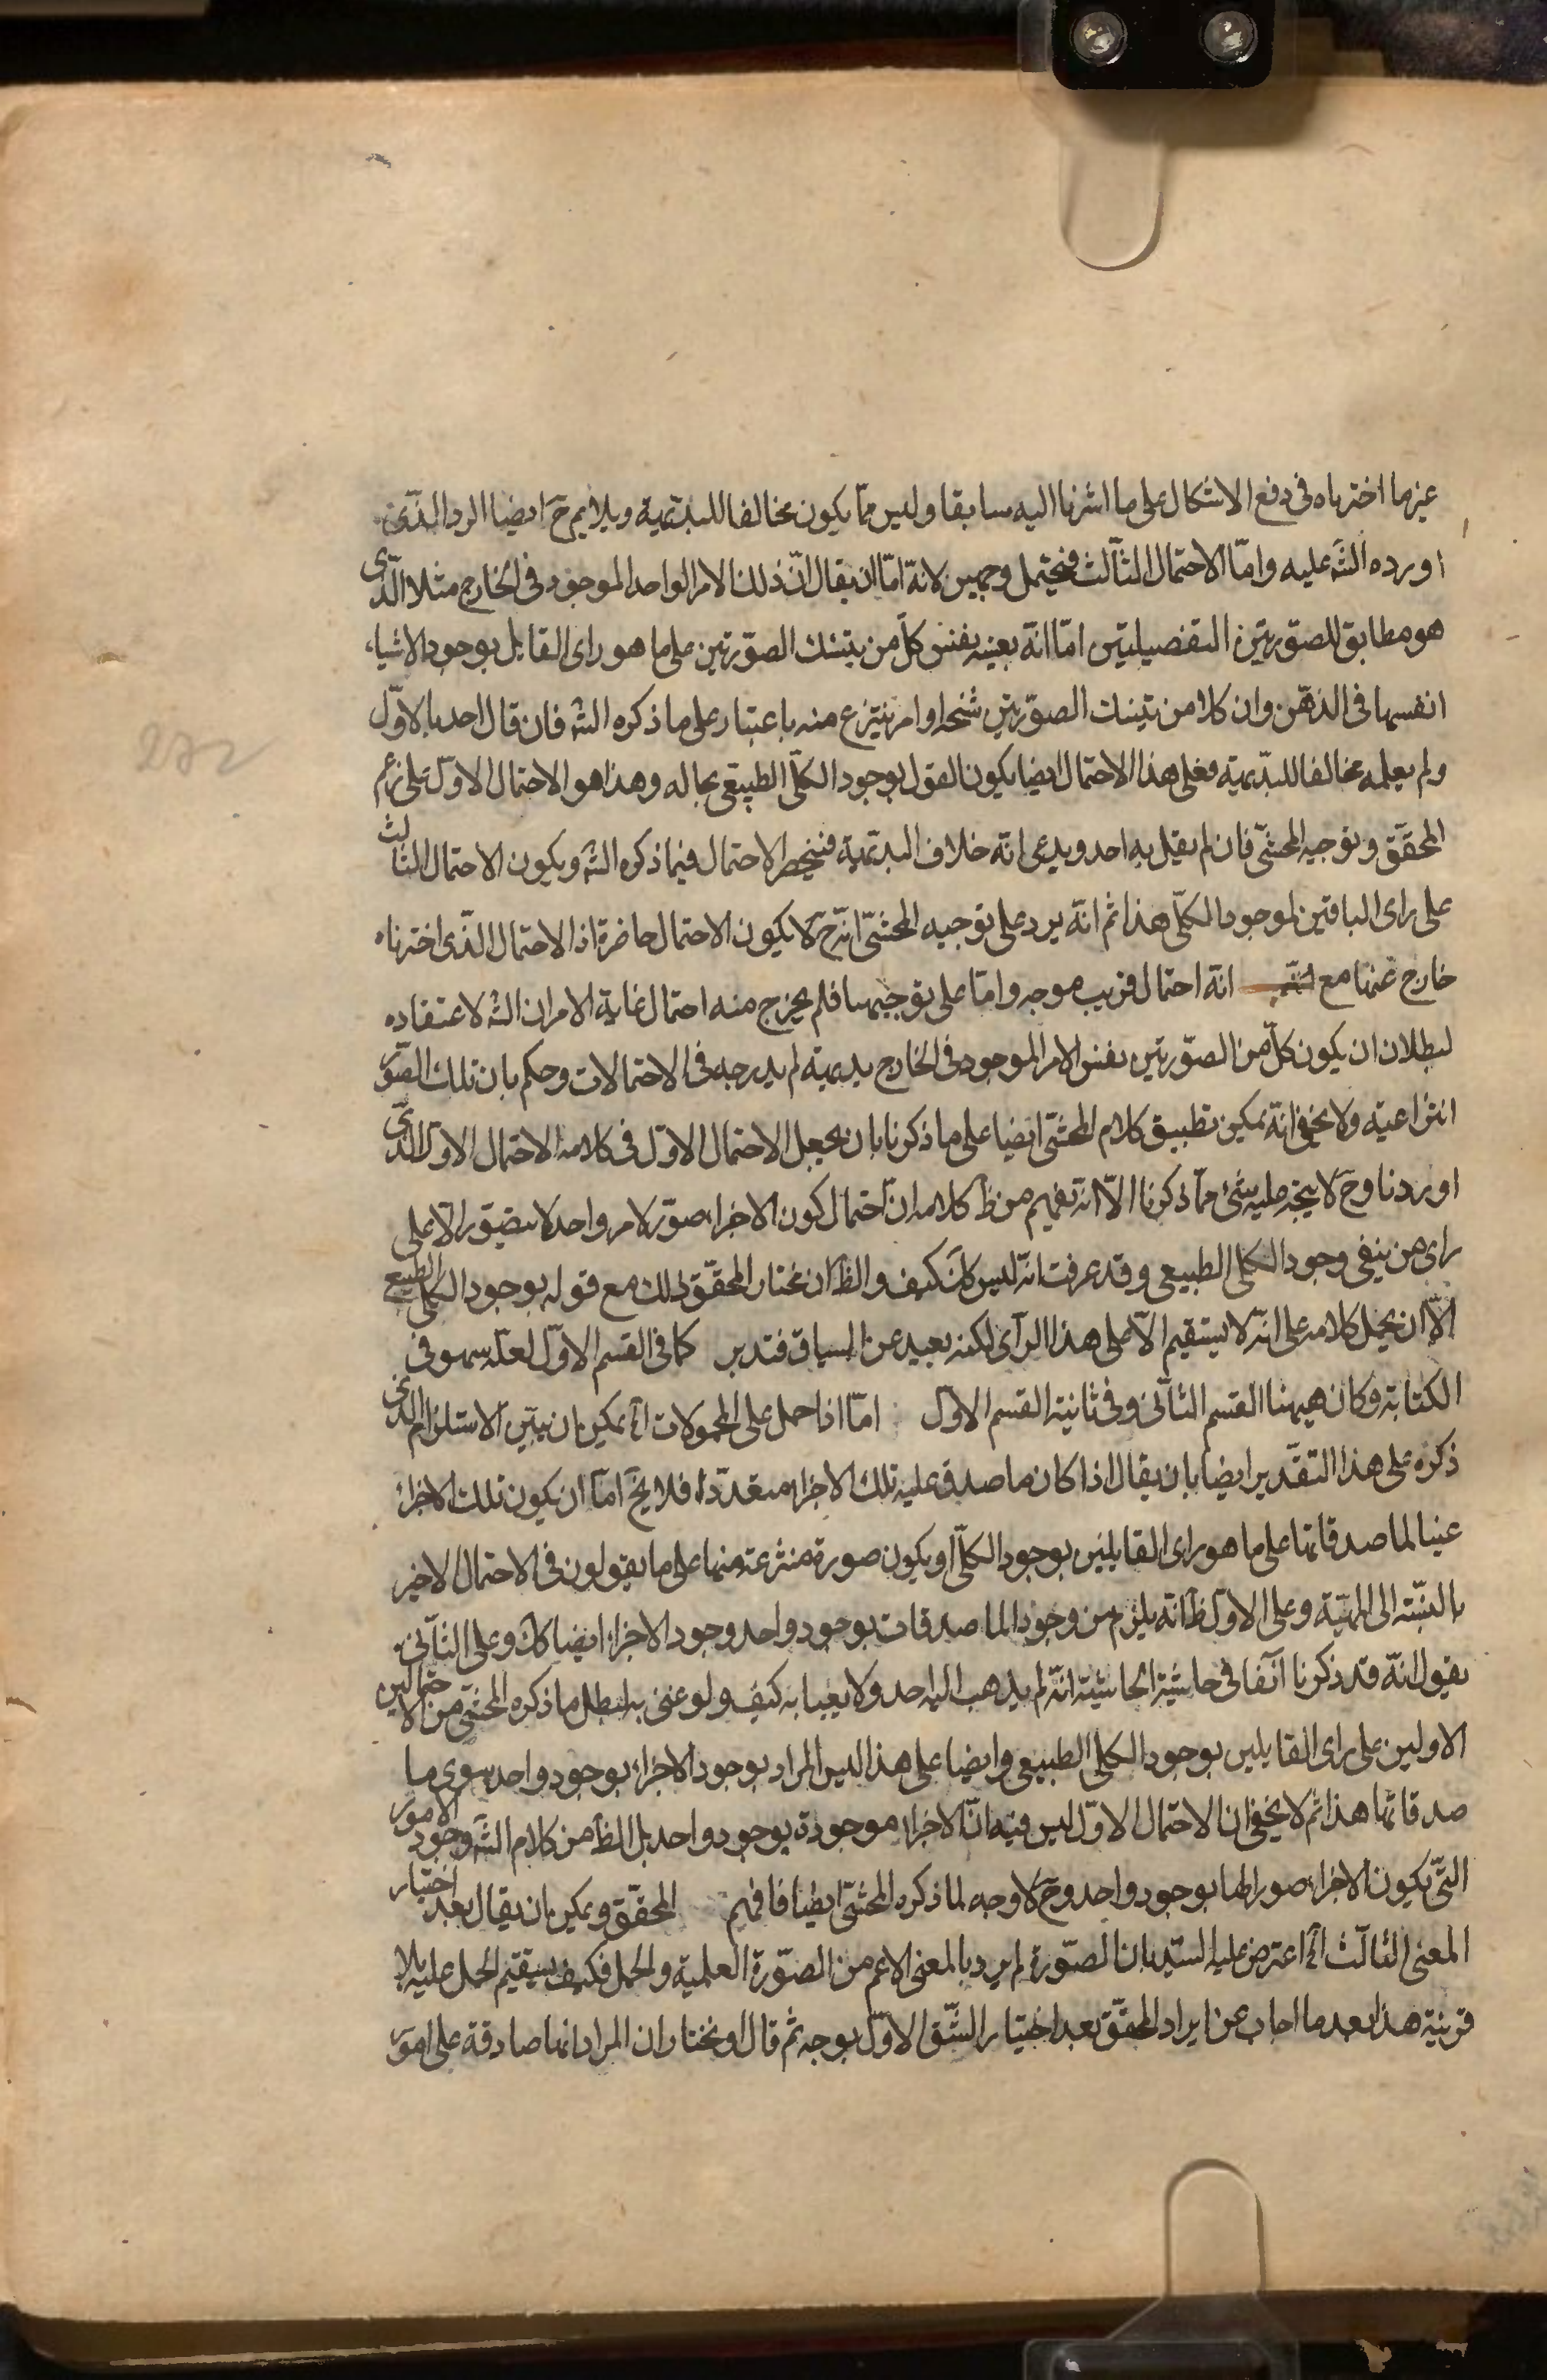 غيرما اخترناه فى دفع الاشكال على ما اشرنا اليه سابقا وليس ممّا يكون مخالفا للبديهية ويلايم ح ايضا الرد الذى
اورده الشه عليه وامّا الاحتمال الثالث فيحتمل وجهين لانه امّا ان يقال انّ ذلك الامر الواحد الموجود فى الخارج مثلا الذى
هو مطابق للصورتين التفصيليتين امّا انه بعينه نفس كلّ من تينك الصّورتين على ما هو راى القايل بوجود الاشياء
انفسها فى الذهن وان كلا من تينك الصورتين شبحا او امر ينتزع منه باعتبار على ما ذكره الشه فان قال احد بالاوّل
ولم يعلمه مخالفا للبديهية فعلى هذا الاحتمال ايضا يكون القول بوجود الكلّى الطبيعى بحاله وهذا هو الاحتمال الاوّل على زعم
المحقّق وتوجيه المحشّى فان لم يقل به احد ويدعى انّه خلاف البديهية فينحصر الاحتمال فيما ذكره الشه ويكون الاحتمال الثالث
على راى النافين لوجود الكلّى هذا ثم انّه يرد على توجيه المحشّى انّه ح لا يكون الاحتمال حاضرة اذ الاحتمال الذى اخترناه
خارج عنها مع انّه احتمال قريب موجه وامّا على توجيهنا فلم يخرج منه احتمال غاية الامر ان الشه لاعتقاده
لبطلان ان يكون كلّ من الصّورتين نفس الامر الموجود فى الخارج بديهية لم يدرجه فى الاحتمالات وحكم بان تلك الصّور
انتزاعية ولا يخفى انّه يمكن تطبيق كلام المحشّى ايضا على ما ذكرنا بان يجعل الاحتمال الاوّل فى كلامه الاحتمال الاول الذى
اوردنا وح لا يتجه عليه شئ ممّا ذكرنا الاّ انّه يفهم من ظ كلامه انّ احتمال كون الاجزاء صور لامر واحد لا يتصور الاّ على
راى من ينفى وجود الكلى الطبيعى وقد عرفت انّه ليس كك كيف والظ ان مختار المحقّق ذلك مع قوله بوجود الكلى الطبيعى
الاّ ان يحمل كلامه على انّه لا يستقيم الاّ على هذا الرأى لكنه بعيد عن السياق فتدبر كما فى القسم الاوّل لعلّه سهو فى
الكتابة وكان ههنا القسم الثانى وفى ثانية القسم الاول امّا اذا حمل على المحمولات اه يمكن ان يبيّن الاستلزام الذى
ذكره على هذا التقدير ايضا بان يقال اذا كان ما صدق عليه تلك الاجزاء متعدّدا فلا يخ امّا ان يكون تلك الاجزاء
عينا لما صدقاتها على ما هو راى القايلين بوجود الكلّى او يكون صورة منتزعة منها على ما يقولون فى الاحتمال الاخير
بالنسبة الى المهيّة وعلى الاول ظ انّه يلزم من وجود الما صدقات بوجود واحد وجود الاجزاء ايضا كك وعلى الثّانى
يقول انّه قد ذكرنا آنفا فى حاشية الحاشية انّه لم يذهب اليه احد ولا يعبا به كيف ولو عنى به لبطل ما ذكره المحشّى من الاحتمالين
الاولين على راى القايلين بوجود الكلى الطبيعى وايضا على هذا ليس المراد بوجود الاجزاء بوجود واحد سوى ما
صدقاتها هذا ثم لا يخفى ان الاحتمال الاوّل ليس فيه انّ الاجزاء موجودة بوجود واحد بل الظ من كلام الشه وجود الامور
التّى يكون الاجزاء صورا لها بوجود واحد وح لا وجه لما ذكره المحشّى ايضا فافهم المحقّق ويمكن ان يقال بعد اختيار
المعنى الثالث اه اعترض عليه السيّد بان الصّورة لم يرد بالمعنى الاعم من الصّورة العلمية والحمل فكيف يستقيم الحمل عليه بلا
قرينة هذا بعد ما اجاب عن ايراد المحقّق بعد اختيار الشّق الاوّل بوجه ثم قال او نختار ان المراد انها صادقة على امور